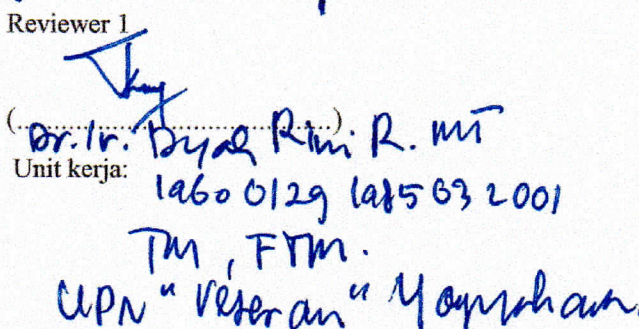 Reviewer 1
(....................................)
Dr. Ir. Dyah Rini R. MT
Unit kerja:
19600129 198503 2001
TM, FTM.
UPN "Veteran" Yogyakarta